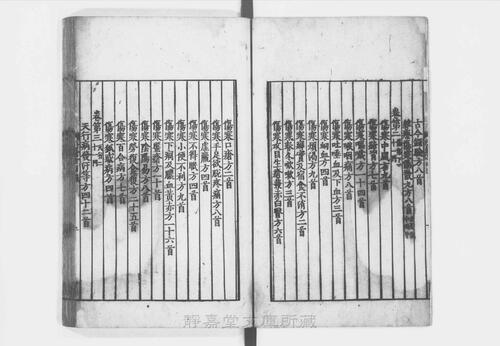 古今録驗方八首
卷第二
傷寒中風方九首
傷寒嘔噦方一十四首
傷寒喉咽痛方八首
傷寒吐唾血及下血方三首
傷寒衄血方四首
傷寒煩渴方九首
傷寒癖實及宿食不消方二首
傷寒春冬咳嗽方三首
傷寒攻目生瘡兼赤白瞖方六首
傷寒口瘡方二首
傷寒手足欲脫疼痛方八首
傷寒虛羸方四首
傷寒不得眠方四首
傷寒小便不利方九首
傷寒下痢及膿血黃赤方一十六首
傷寒𧏾瘡方一十首
傷寒陰陽易方八首
傷寒勞復食復方二十五首
傷寒百合病方七首
傷寒狐惑病方四首
卷第三
天行病發汗等方四十二首
靜嘉堂文庫所藏